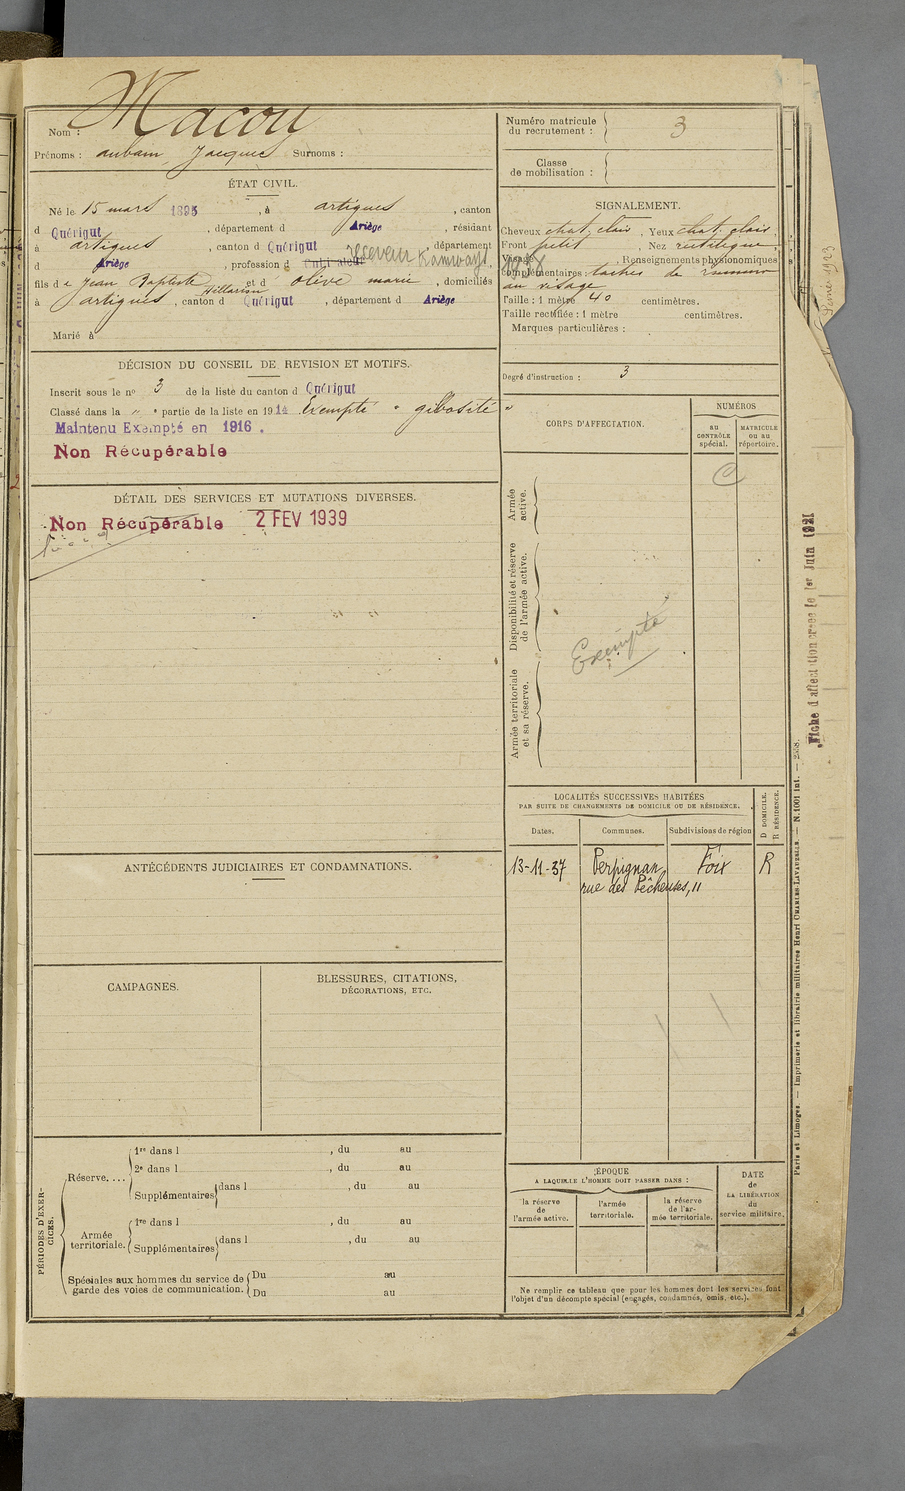 Nom : Macou
Prénoms : aubain, Jacques Surnoms :
ÉTAT CIVIL.
Né le 15 mars 1895, à artigues, canton
d Quérigut, département d Ariège, résidant
à artigues, canton d Quérigut, département
d Ariège, profession d Cultivateur receveur tramways
fils de Jean Baptiste Hillarion et d olive marie, domiciliés
à artigues, canton d Quérigut, département d Ariège
Marié à
DÉCISION DU CONSEIL DE REVISION ET MOTIFS.
Inscrit sous le nº 3 de la liste du canton d Quérigut
Classé dans la " " partie de la liste en 1914 Exempté " gibosité "
Maintenu Exempté en 1916.
Non Récupérable
DÉTAIL DES SERVICES ET MUTATIONS DIVERSES.
Non Récupérable 2 FEV 1939
ANTÉCÉDENTS JUDICIAIRES ET CONDAMNATIONS.
CAMPAGNES.
BLESSURES, CITATIONS,
DÉCORATIONS, ETC.
PÉRIODES D'EXER-
CICES.
Réserve....
1re dans l , du au
2e dans l , du au
Supplémentaires dans l , du au
Armée
territoriale.
1re dans l , du au
Supplémentaires dans l , du au
Spéciales aux hommes du service de
garde des voies de communication.
Du au
Du au
Numéro matricule
du recrutement : 3
Classe
de mobilisation :
SIGNALEMENT.
Cheveux chat. clair, Yeux chat. clair,
Front petit, Nez rectiligne,
Visage , Renseignements physionomiques
complémentaires : taches de rousseur
au visage
Taille : 1 mètre 40 centimètres.
Taille rectifiée : 1 mètre centimètres.
Marques particulières :
Degré d'instruction : 3
CORPS D'AFFECTATION.
NUMÉROS
au
CONTRÔLE
spécial.
MATRICULE
ou au
répertoire.
C
Armée
active.
Disponibilité et réserve
de l'armée active.
Exempté
Armée territoriale
et sa réserve.
LOCALITÉS SUCCESSIVES HABITÉES
PAR SUITE DE CHANGEMENTS DE DOMICILE OU DE RÉSIDENCE.
D DOMICILE.
R RÉSIDENCE.
Dates. Communes. Subdivisions de région
13-11-37 Perpignan Foix R
rue des Pêcheuses, 11
ÉPOQUE
A LAQUELLE L'HOMME DOIT PASSER DANS :
la réserve
de
l'armée active.
l'armée
territoriale.
la réserve
de l'ar-
mée territoriale.
DATE
de
LA LIBÉRATION
du
service militaire.
Ne remplir ce tableau que pour les hommes dont les services font
l'objet d'un décompte spécial (engagés, condamnés, omis, etc.).
Paris et Limoges. — Imprimerie et librairie militaires Henri CHARLES-LAVAUZELLE. — N. 1001 int. —
Fiche d'affectation créée le 1er Juin 1921
1923